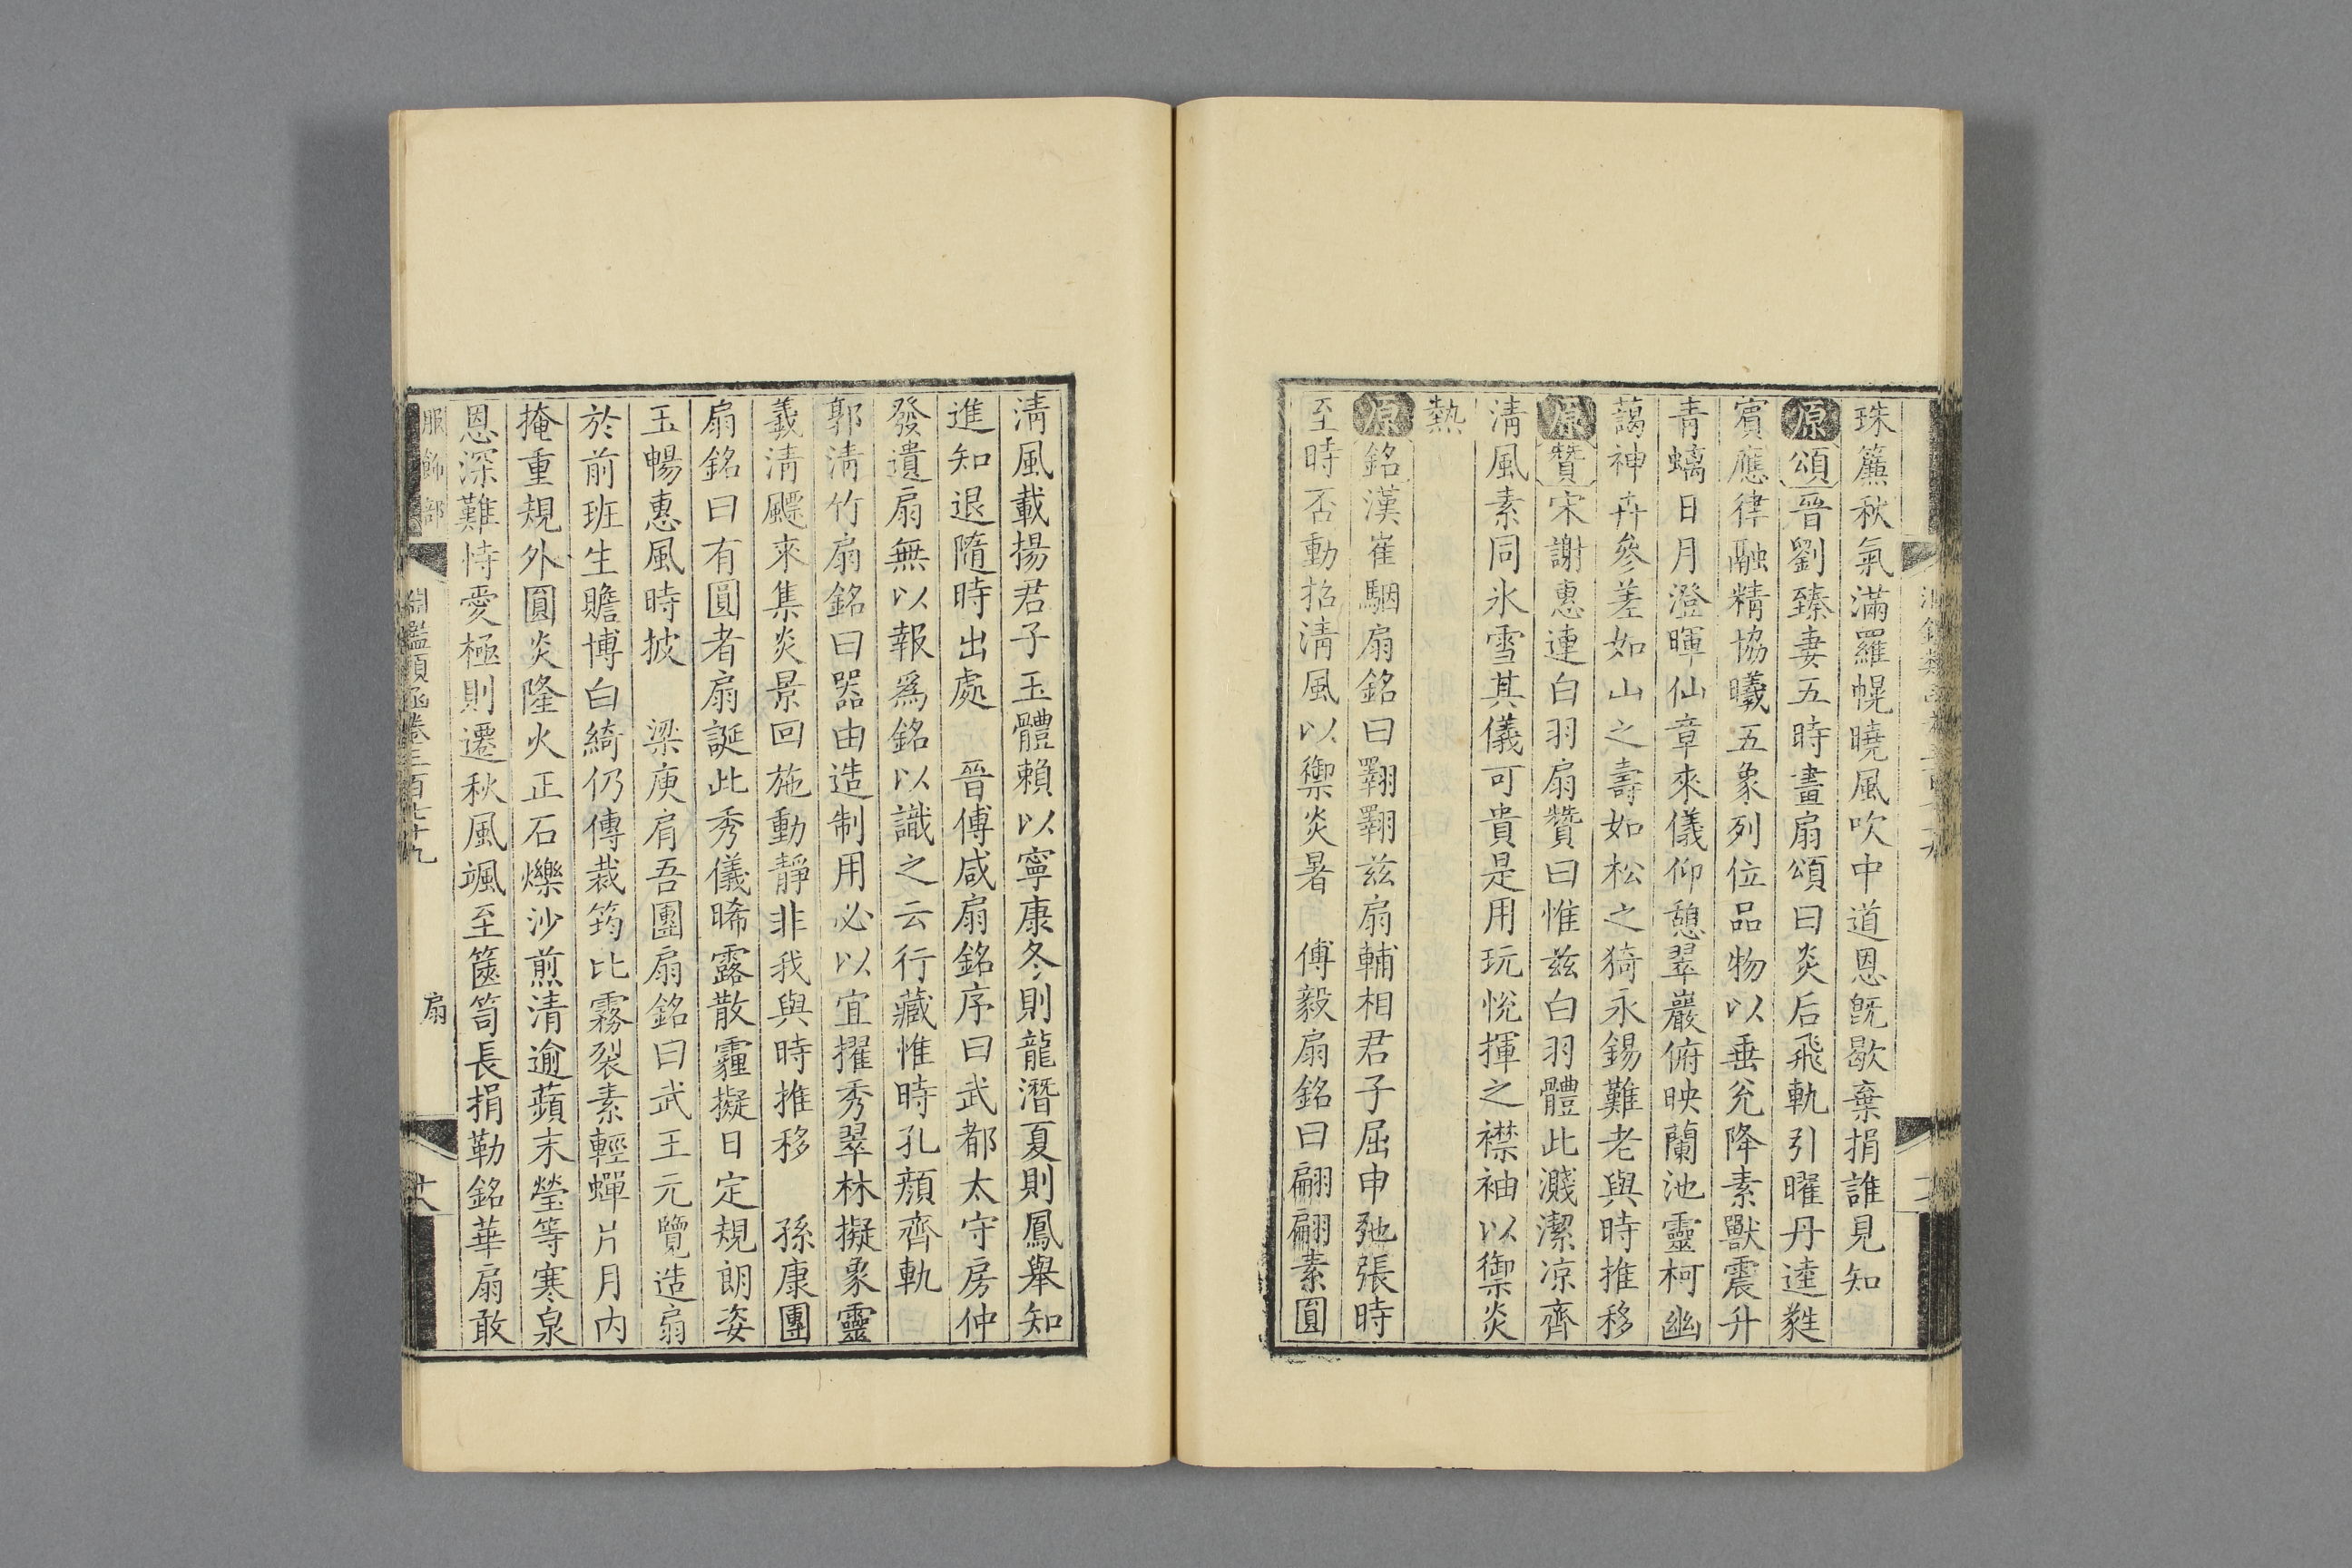 珠簾秋氣滿羅幌曉風吹中道恩旣歇棄捐誰見知
原頌晉劉臻妻五時畫扇頌曰炎后飛軌引曜丹逵蕤
賓應律融精協曦五象列位品物以垂兊降素獸震升
青螭日月澄暉仙章來儀仰憩翠巖俯映蘭池靈柯幽
藹神卉參差如山之壽如松之猗永錫難老與時推移
原贊宋謝惠連白羽扇贊曰惟兹白羽體此濺潔凉齊
清風素同氷雪其儀可貴是用玩悅揮之襟袖以禦炎
熱
原銘漢崔駰扇銘曰翺翺兹扇輔相君子屈申弛張時
至時否動招清風以禦炎暑 傅毅扇銘曰翩翩素圓
清風載揚君子玉體賴以寧康冬則龍潛夏則鳳舉知
進知退隨時出處 晉傅咸扇銘序曰武都太守房仲
發遺扇無以報爲銘以識之云行藏惟時孔顏齊軌
郭淸竹扇銘曰器由造制用必以宜擢秀翠林擬象靈
羲淸飇來集炎景回施動靜非我與時推移 孫康團
扇銘曰有圓者扇誕此秀儀晞露散霾擬日定規朗姿
玉暢惠風時披 梁庾肩吾團扇銘曰武王元覽造扇
於前班生贍博白綺仍傳裁筠比霧裂素輕蟬片月内
掩重規外圓炎隆火正石爍沙煎清逾蘋末瑩等寒泉
恩深難恃愛極則遷秋風颯至篋笥長捐勒銘華扇敢
服飾部 淵鑑類函卷三百七十九 扇